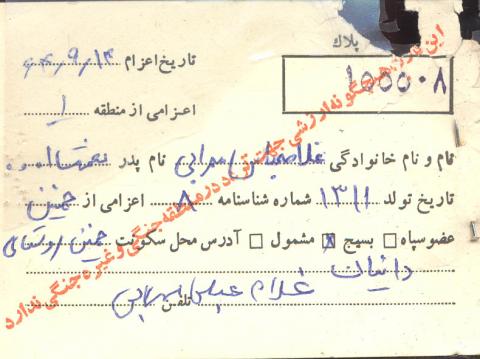 پلاک
۱۵۵۵۰۸
تاریخ اعزام ۶۴٫۹٫۱۳
اعزامی از منطقه ۱
نام و نام خانوادگی غلامعباس سهرابی نام پدر
تاریخ تولد ۱۳۱۱ شماره شناسنامه ۸ اعزامی از خمین
عضو سپاه □ بسیج ☒ مشمول □ آدرس محل سکونت خمین روستای
دانیان
تلفن
غلام عباس سهرابی
این کارت هیچگونه ارزشی جهت تردد در منطقه جنگی و غیره جنگی ندارد